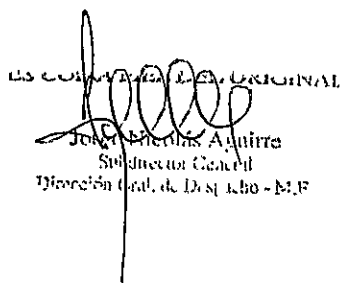 ES COPIA FIEL DEL ORIGINAL
Nicolás Aguirre
Subdirector General
Dirección Gral. de Despacho - M.F